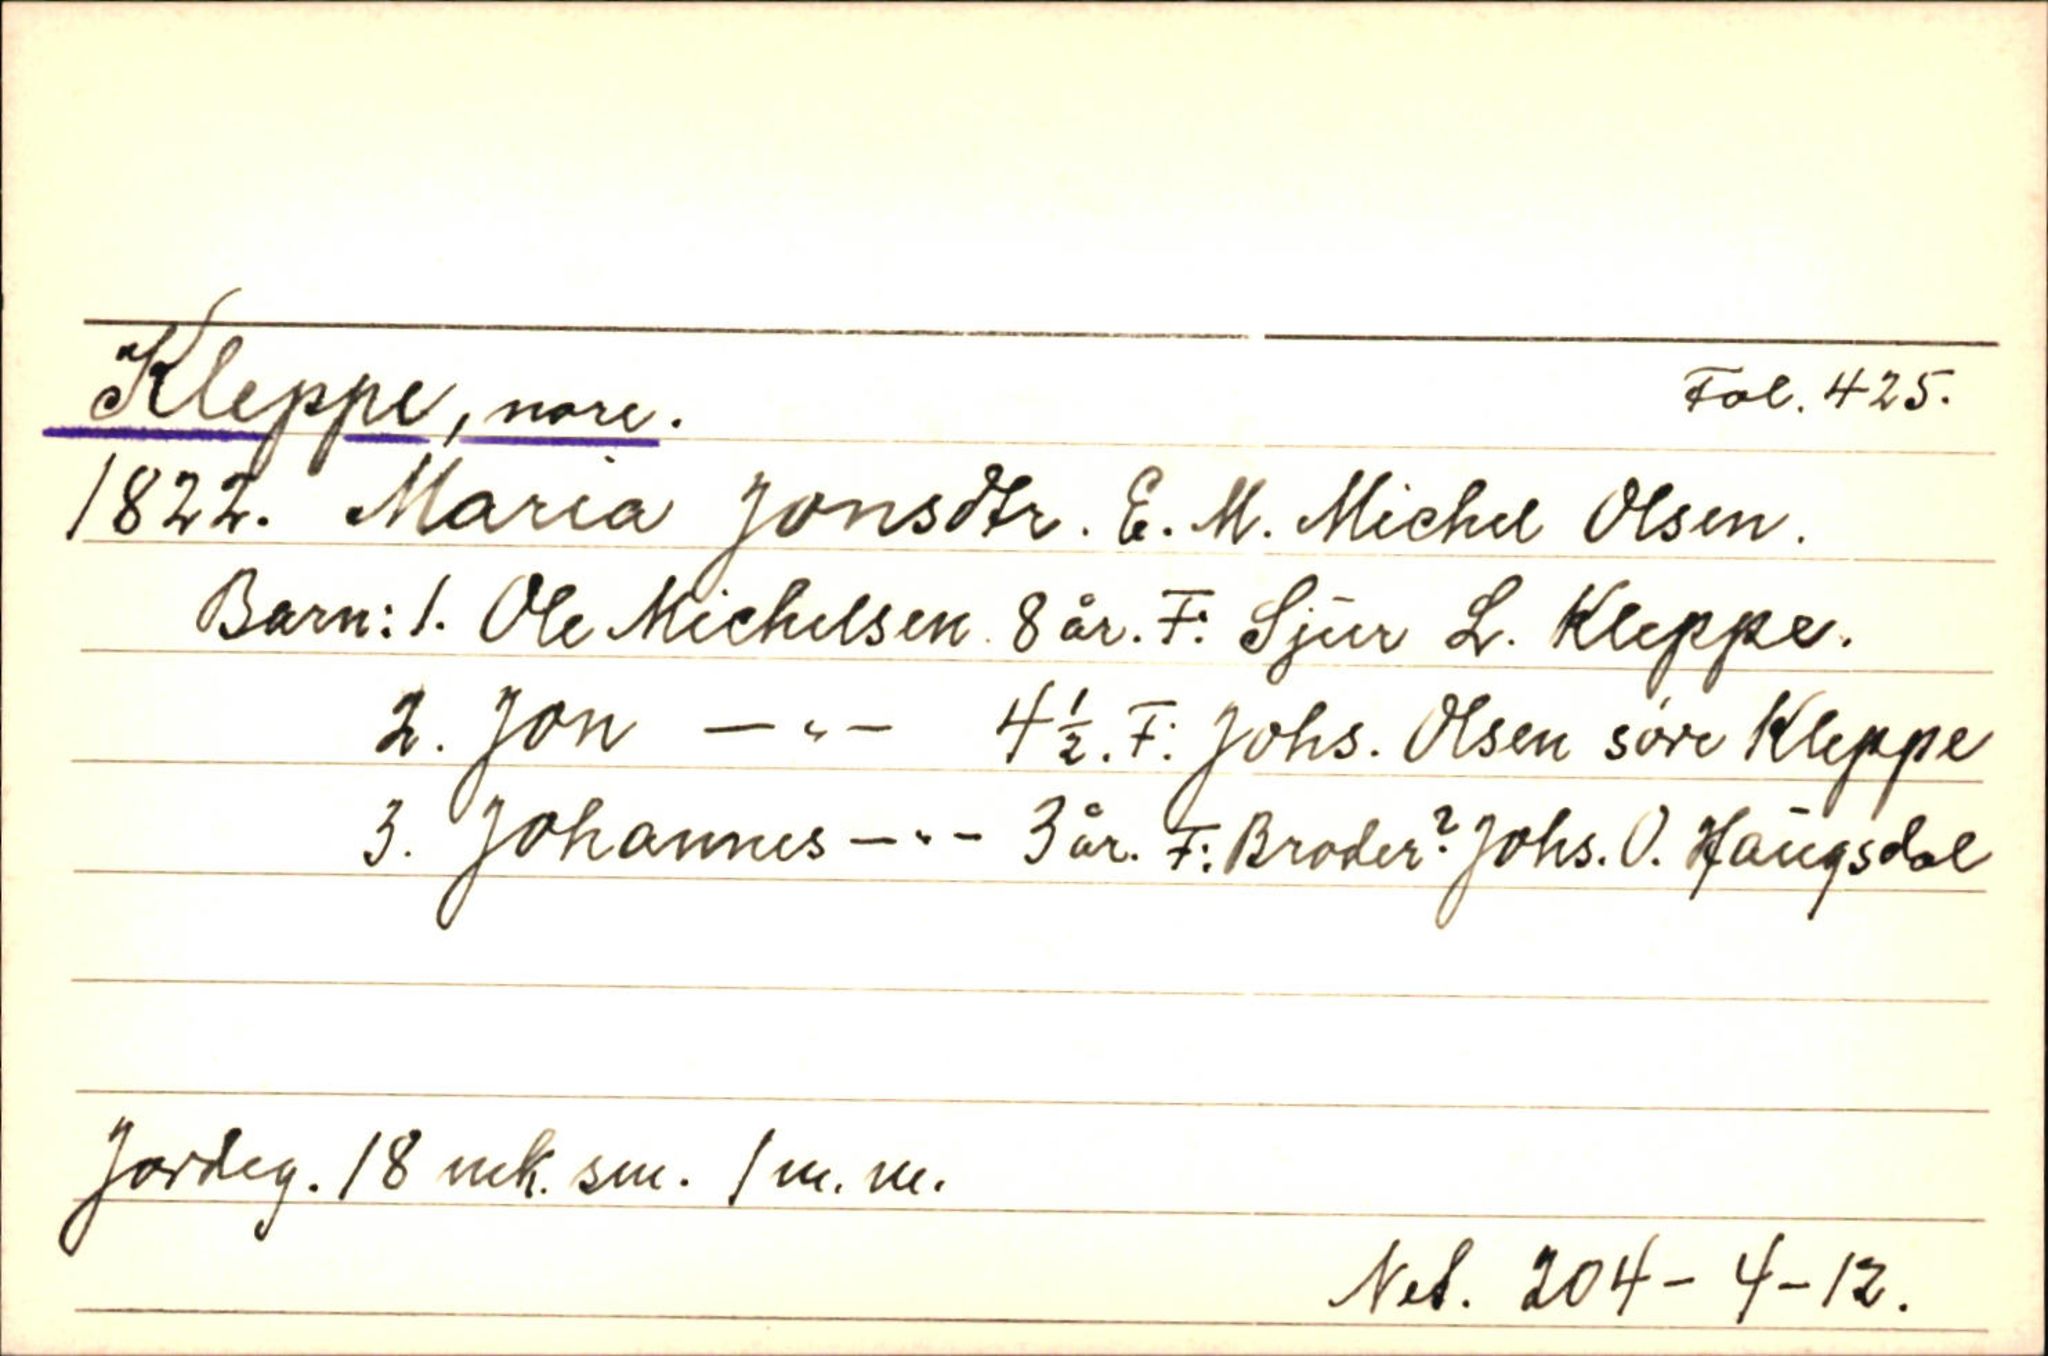 Kleppe, nore. Fol. 425.
1822. Maria Jonsdtr. E. M. Michel Olsen.
Barn: 1. Ole Michelsen 8 år. F: Sjūr L. Kleppe.
2. Jon —"— 4½. F: Johs. Olsen søre Kleppe
3. Johannes —"— 3 år. F: Broder? Johs. O. Haūgsdal
Jordeg. 18 mk. sm. 1 m. m.
Net. 204 - 4 - 12.